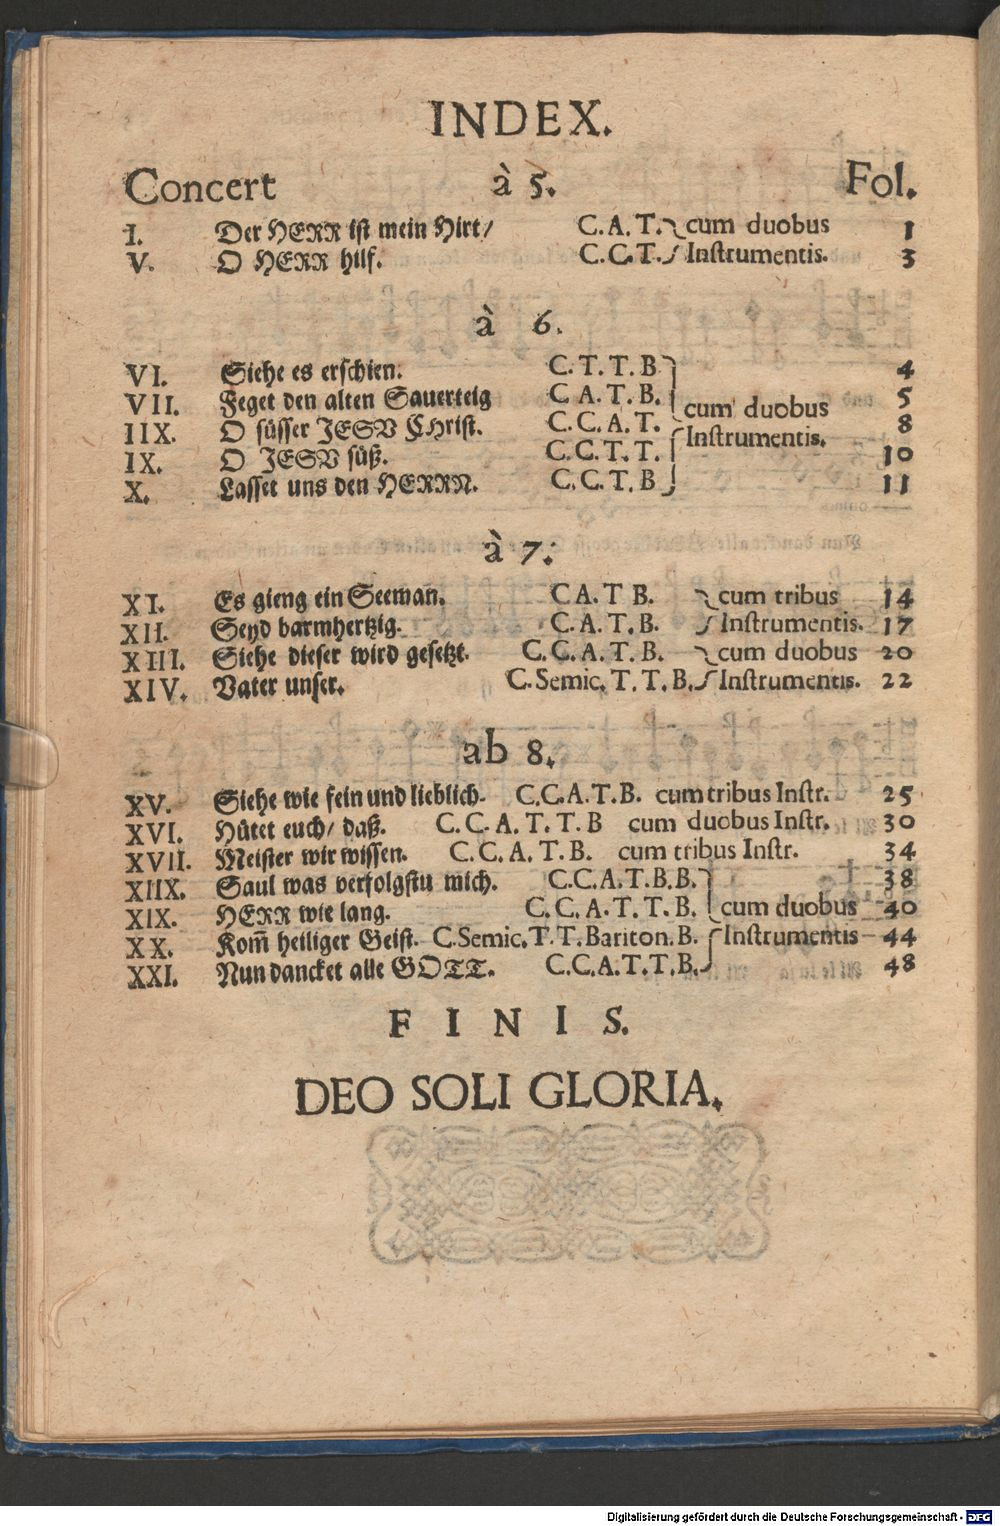 INDEX.
Concert à 5. Fol.
I. Der HERR ist mein Hirt/ C. A. T. cum duobus 1
V. O HERR hilf. C. C. T. Instrumentis. 3
à 6.
VI. Siehe es erschien. C. T. T. B 4
VII. Feget den alten Sauerteig C A. T. B. cum duobus 5
IIX. O süsser JESU CHrist. C. C. A. T. Instrumentis. 8
IX. O JESU süß. C. C. T. T. 10
X. Lasset uns den HERRN. C. C. T. B 11
à 7.
XI. Es gieng ein Seeman. C A. T B. cum tribus 14
XII. Seyd barmhertzig. C. A. T. B. Instrumentis. 17
XIII. Siehe dieser wird gesetzt. C. C. A. T. B. cum duobus 20
XIV. Vater unser. C. Semic. T. T. B. Instrumentis. 22
ab 8.
XV. Siehe wie fein und lieblich. C. C. A. T. B. cum tribus Instr. 25
XVI. Hütet euch/ daß. C. C. A. T. T. B cum duobus Instr. 30
XVII. Meister wir wissen. C. C. A. T. B. cum tribus Instr. 34
XIIX. Saul was verfolgstu mich. C. C. A. T. B. B. 38
XIX. HERR wie lang. C. C. A. T. T. B. cum duobus 40
XX. Kom̃ heiliger Geist. C. Semic. T. T. Bariton. B. Instrumentis 44
XXI. Nun dancket alle GOTT. C. C. A. T. T. B. 48
F I N I S.
DEO SOLI GLORIA.
Digitalisierung gefördert durch die Deutsche Forschungsgemeinschaft - DFG